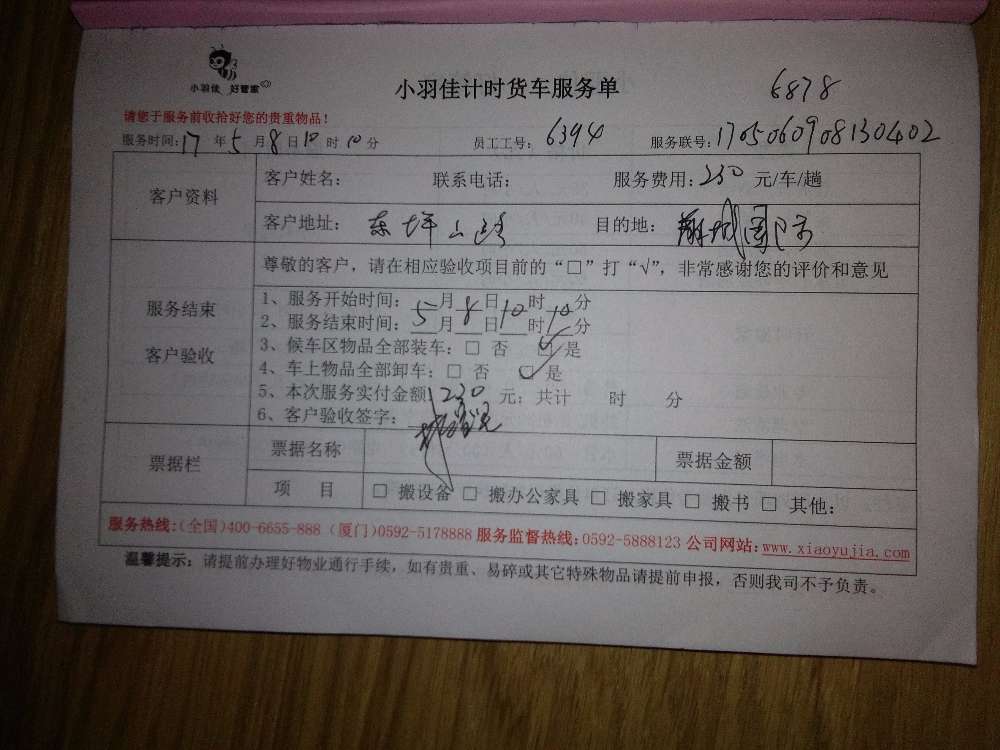 小羽佳 好管家
小羽佳计时货车服务单 6878
请您于服务前收拾好您的贵重物品！
服务时间：17年5月8日10时10分 员工工号：6394 服务联号：1705060908130402
客户资料 客户姓名： 联系电话： 服务费用：230 元/车/趟
客户地址：东坪山路 目的地：国际
尊敬的客户，请在相应验收项目前的“□”打“√”，非常感谢您的评价和意见
服务结束
客户验收
1、服务开始时间：5月8日10时10分
2、服务结束时间：5月8日10时10分
3、候车区物品全部装车：□ 否 ☑是
4、车上物品全部卸车：□ 否 ☑是
5、本次服务实付金额 230 元；共计 时 分
6、客户验收签字：
票据栏 票据名称 票据金额
项 目 □ 搬设备 □ 搬办公家具 □ 搬家具 □ 搬书 □ 其他：
服务热线：（全国）400-6655-888（厦门）0592-5178888 服务监督热线：0592-5888123 公司网站：www.xiaoyujia.com
温馨提示：请提前办理好物业通行手续，如有贵重、易碎或其它特殊物品请提前申报，否则我司不予负责。